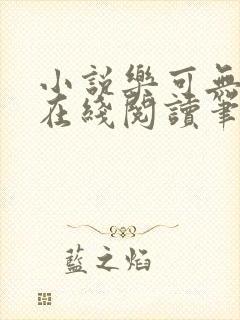 小說樂可無
在綫閱讀筆
藍之焰